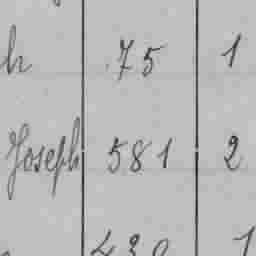 h 75 1
Joseph 581 2
430 1